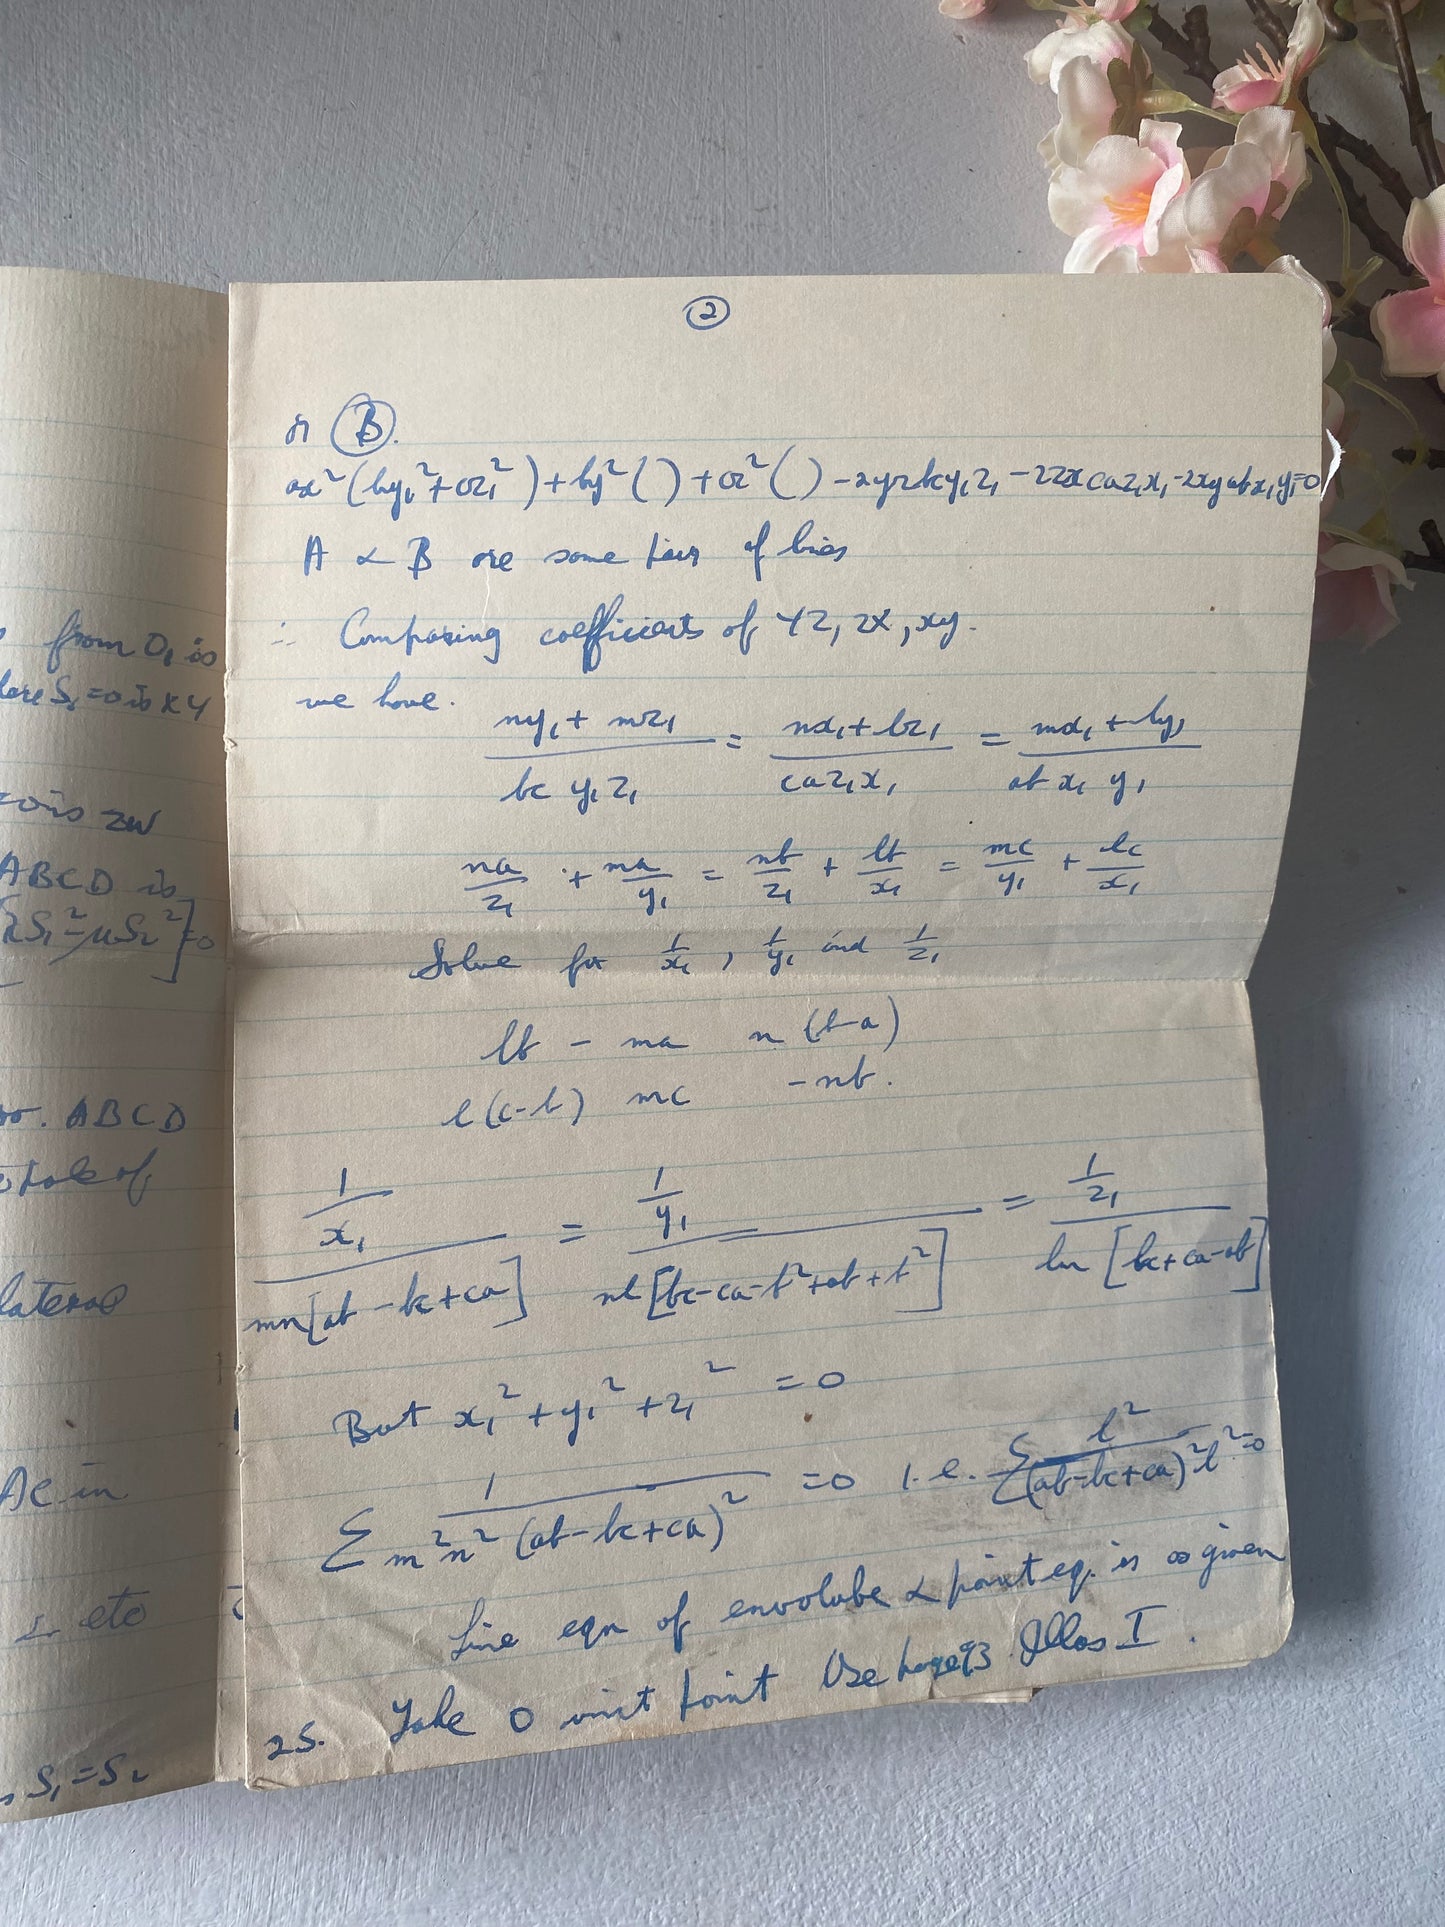 s from O₁ is
S₁ = 0 is xy
is zw
ABCD is
λS₁² - μS₂²] = 0
ABCD
pole of
lateral
AC in
etc
S₁ = S₂
②
or Ⓑ.
ax²(by₁² + cz₁²) + by²( ) + cz²( ) - 2yzbcy₁z₁ - 2zxcaz₁x₁ - 2xyabx₁y₁ = 0
A & B are same pair of lines
∴ Comparing coefficients of yz, zx, xy.
we have. (ny₁ + mz₁)/(bc y₁z₁) = (nx₁ + lz₁)/(ca z₁x₁) = (mx₁ + ly₁)/(ab x₁ y₁)
na/z₁ + ma/y₁ = nb/z₁ + lb/x₁ = mc/y₁ + lc/x₁
Solve for 1/x₁, 1/y₁ and 1/z₁
lb - ma n(b-a)
l(c-b) mc -nb.
(1/x₁)/(mn[ab - bc + ca]) = (1/y₁)/(nl[bc - ca - b² + ab + b²]) = (1/z₁)/(lm[bc + ca - ab])
But x₁² + y₁² + z₁² = 0
Σ 1/(m²n²(ab - bc + ca)²) = 0 i.e. Σ l²/(ab - bc + ca)² l² = 0
Line eqn of envolube & point eq. is as given
25. Take O unit point Use page 93 Illus I.